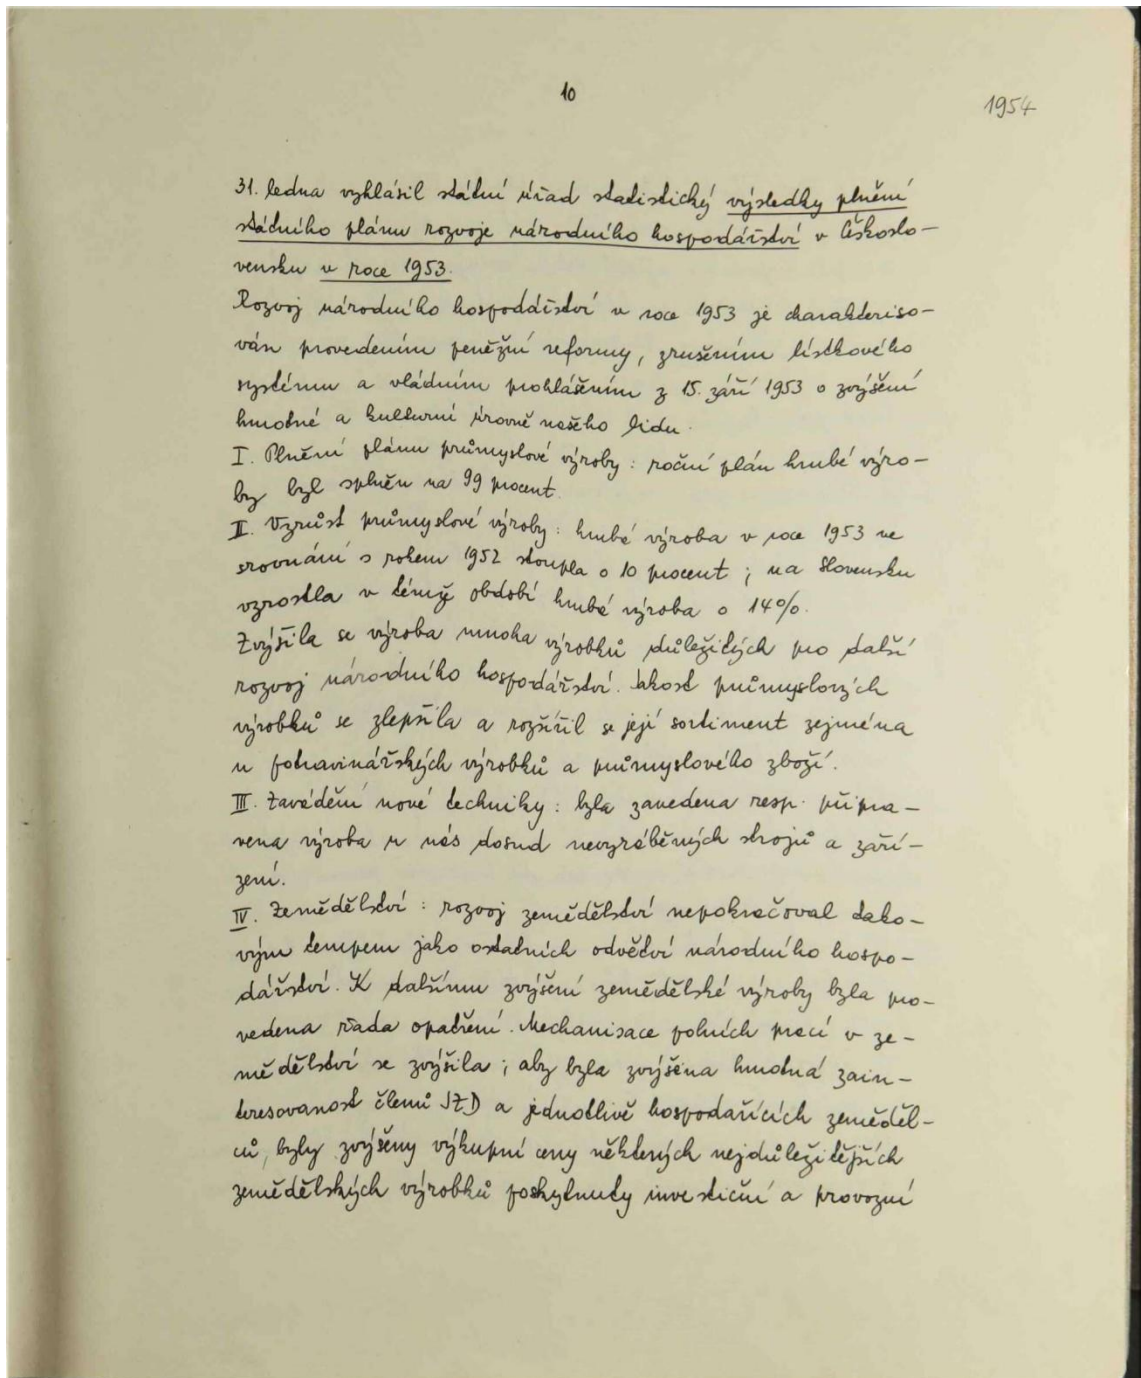 10
1954
31. ledna vyhlásil státní úřad statistický výsledky plnění
státního plánu rozvoje národního hospodářství v Českoslo-
vensku v roce 1953.
Rozvoj národního hospodářství v roce 1953 je charakteriso-
ván provedením peněžní reformy, zrušením lístkového
systému a vládním prohlášením z 15. září 1953 o zvýšení
hmotné a kulturní úrovně našeho lidu.
I. Plnění plánu průmyslové výroby: roční plán hrubé výro-
by byl splněn na 99 procent.
II. Vzrůst průmyslové výroby: hrubá výroba v roce 1953 ve
srovnání s rokem 1952 stoupla o 10 procent; na Slovensku
vzrostla v témž období hrubá výroba o 14%.
Zvýšila se výroba mnoha výrobků důležitých pro další
rozvoj národního hospodářství. Jakost průmyslových
výrobků se zlepšila a rozšířil se její sortiment zejména
u potravinářských výrobků a průmyslového zboží.
III. Zavádění nové techniky: byla zavedena resp. připra-
vena výroba u nás dosud nevyráběných strojů a zaří-
zení.
IV. Zemědělství: rozvoj zemědělství nepokračoval tako-
vým tempem jako ostatních odvětví národního hospo-
dářství. K dalšímu zvýšení zemědělské výroby byla pro-
vedena řada opatření. Mechanisace polních prací v ze-
mědělství se zvýšila; aby byla zvýšena hmotná zain-
teresovanost členů JZD a jednotlivě hospodařících zeměděl-
ců, byly zvýšeny výkupní ceny některých nejdůležitějších
zemědělských výrobků poskytnuty investiční a provozní